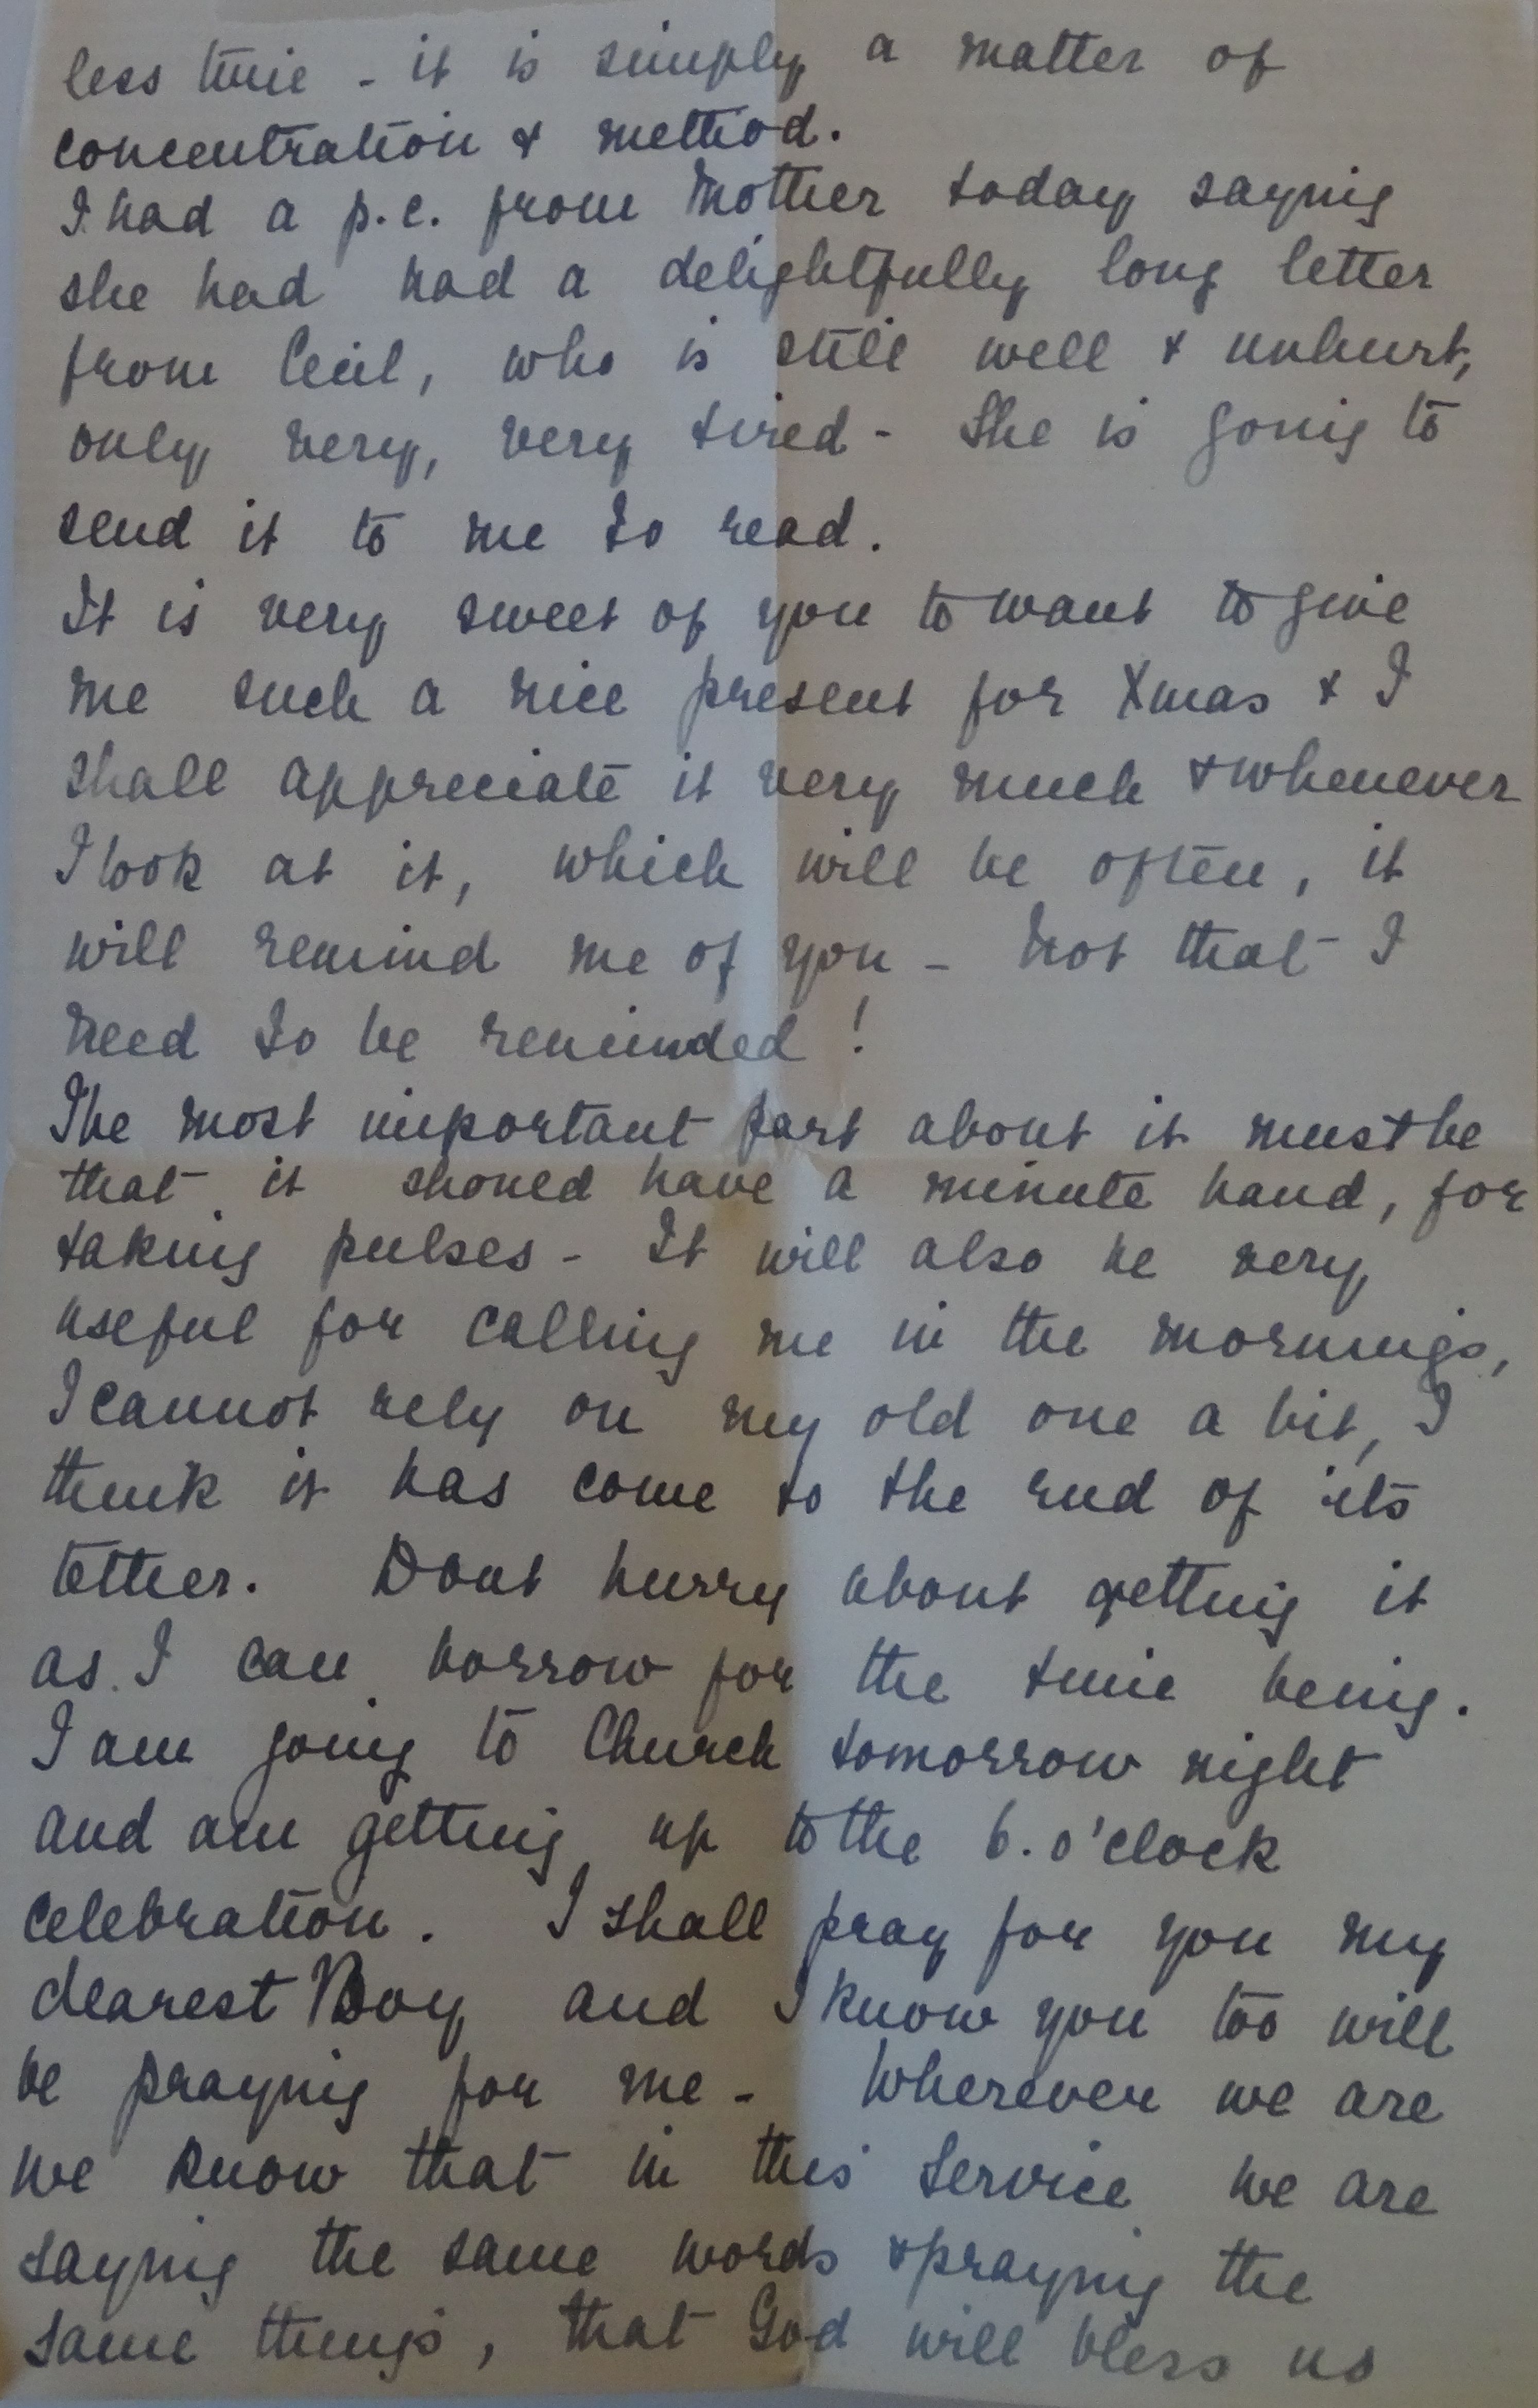 less time - it is simply a matter of
concentration & method.
I had a p.c. from Mother today saying
she had had a delightfully long letter
from Cecil, who is still well & unhurt,
only very, very tired - She is going to
send it to me to read.
It is very sweet of you to want to give
me such a nice present for Xmas & I
shall appreciate it very much & whenever
I look at it, which will be often, it
will remind me of you - Not that I
need to be reminded!
The most important part about it must be
that it should have a minute hand, for
taking pulses - It will also be very
useful for calling me in the mornings,
I cannot rely on my old one a bit, I
think it has come to the end of its
tether. Dont hurry about getting it
as I can borrow for the time being.
I am going to Church tomorrow night
and am getting up to the 6. o'clock
celebration. I shall pray for you my
dearest Boy and I know you too will
be praying for me - Wherever we are
we know that in this Service we are
saying the same words & praying the
same things, that God will bless us